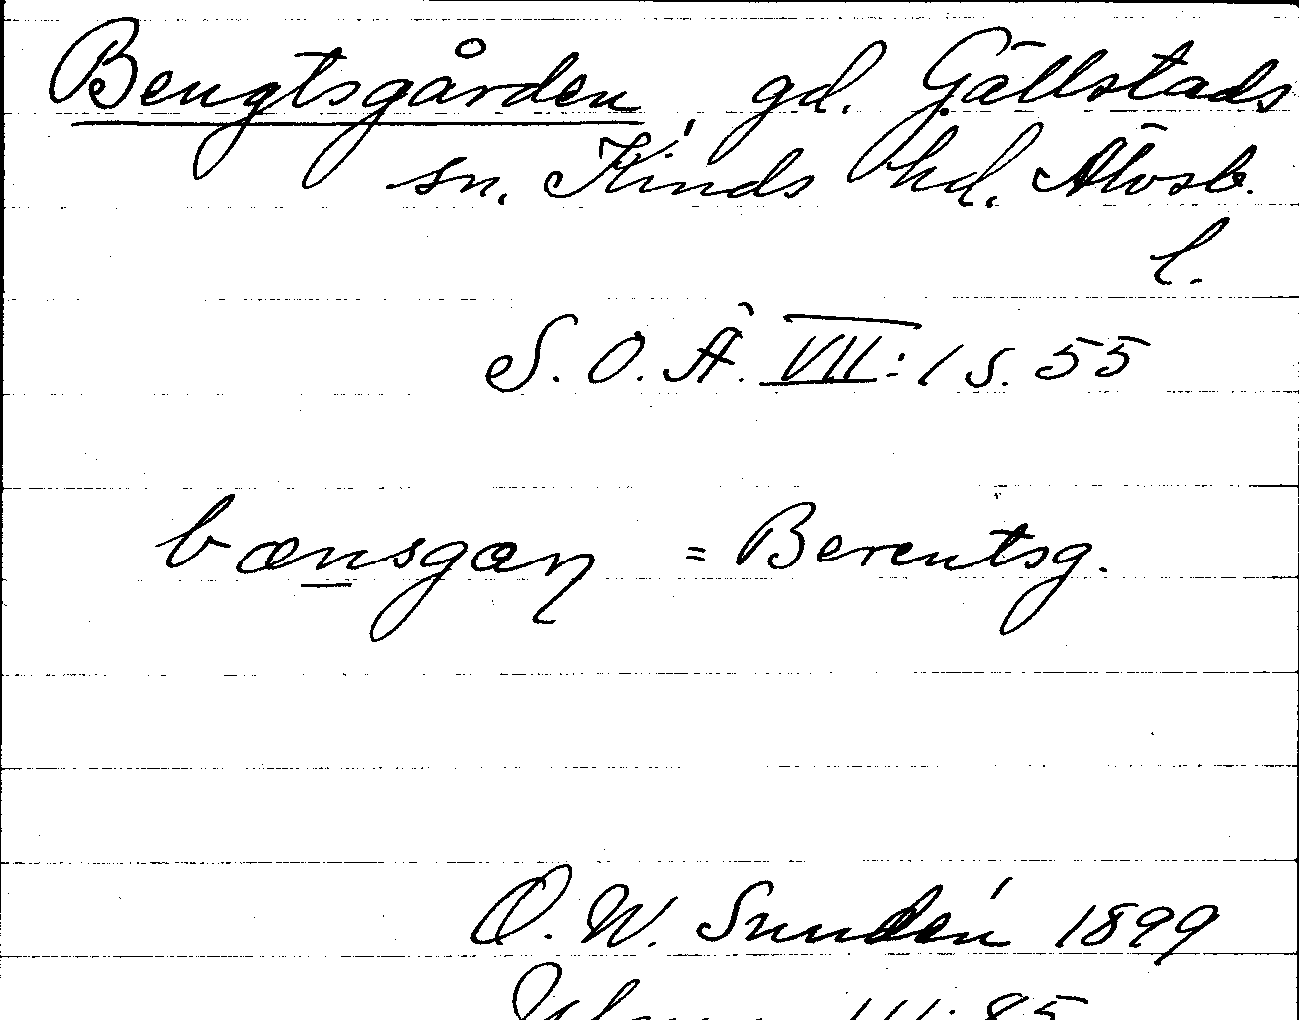 Bengtsgården, gd. Gällstads
sn. Kinds hd. Älvsb.
l.
S. O. Ä. VII: 1 S. 55
bænsgæɳ = Berentsg.
D. W. Sundén 1899
III: 85